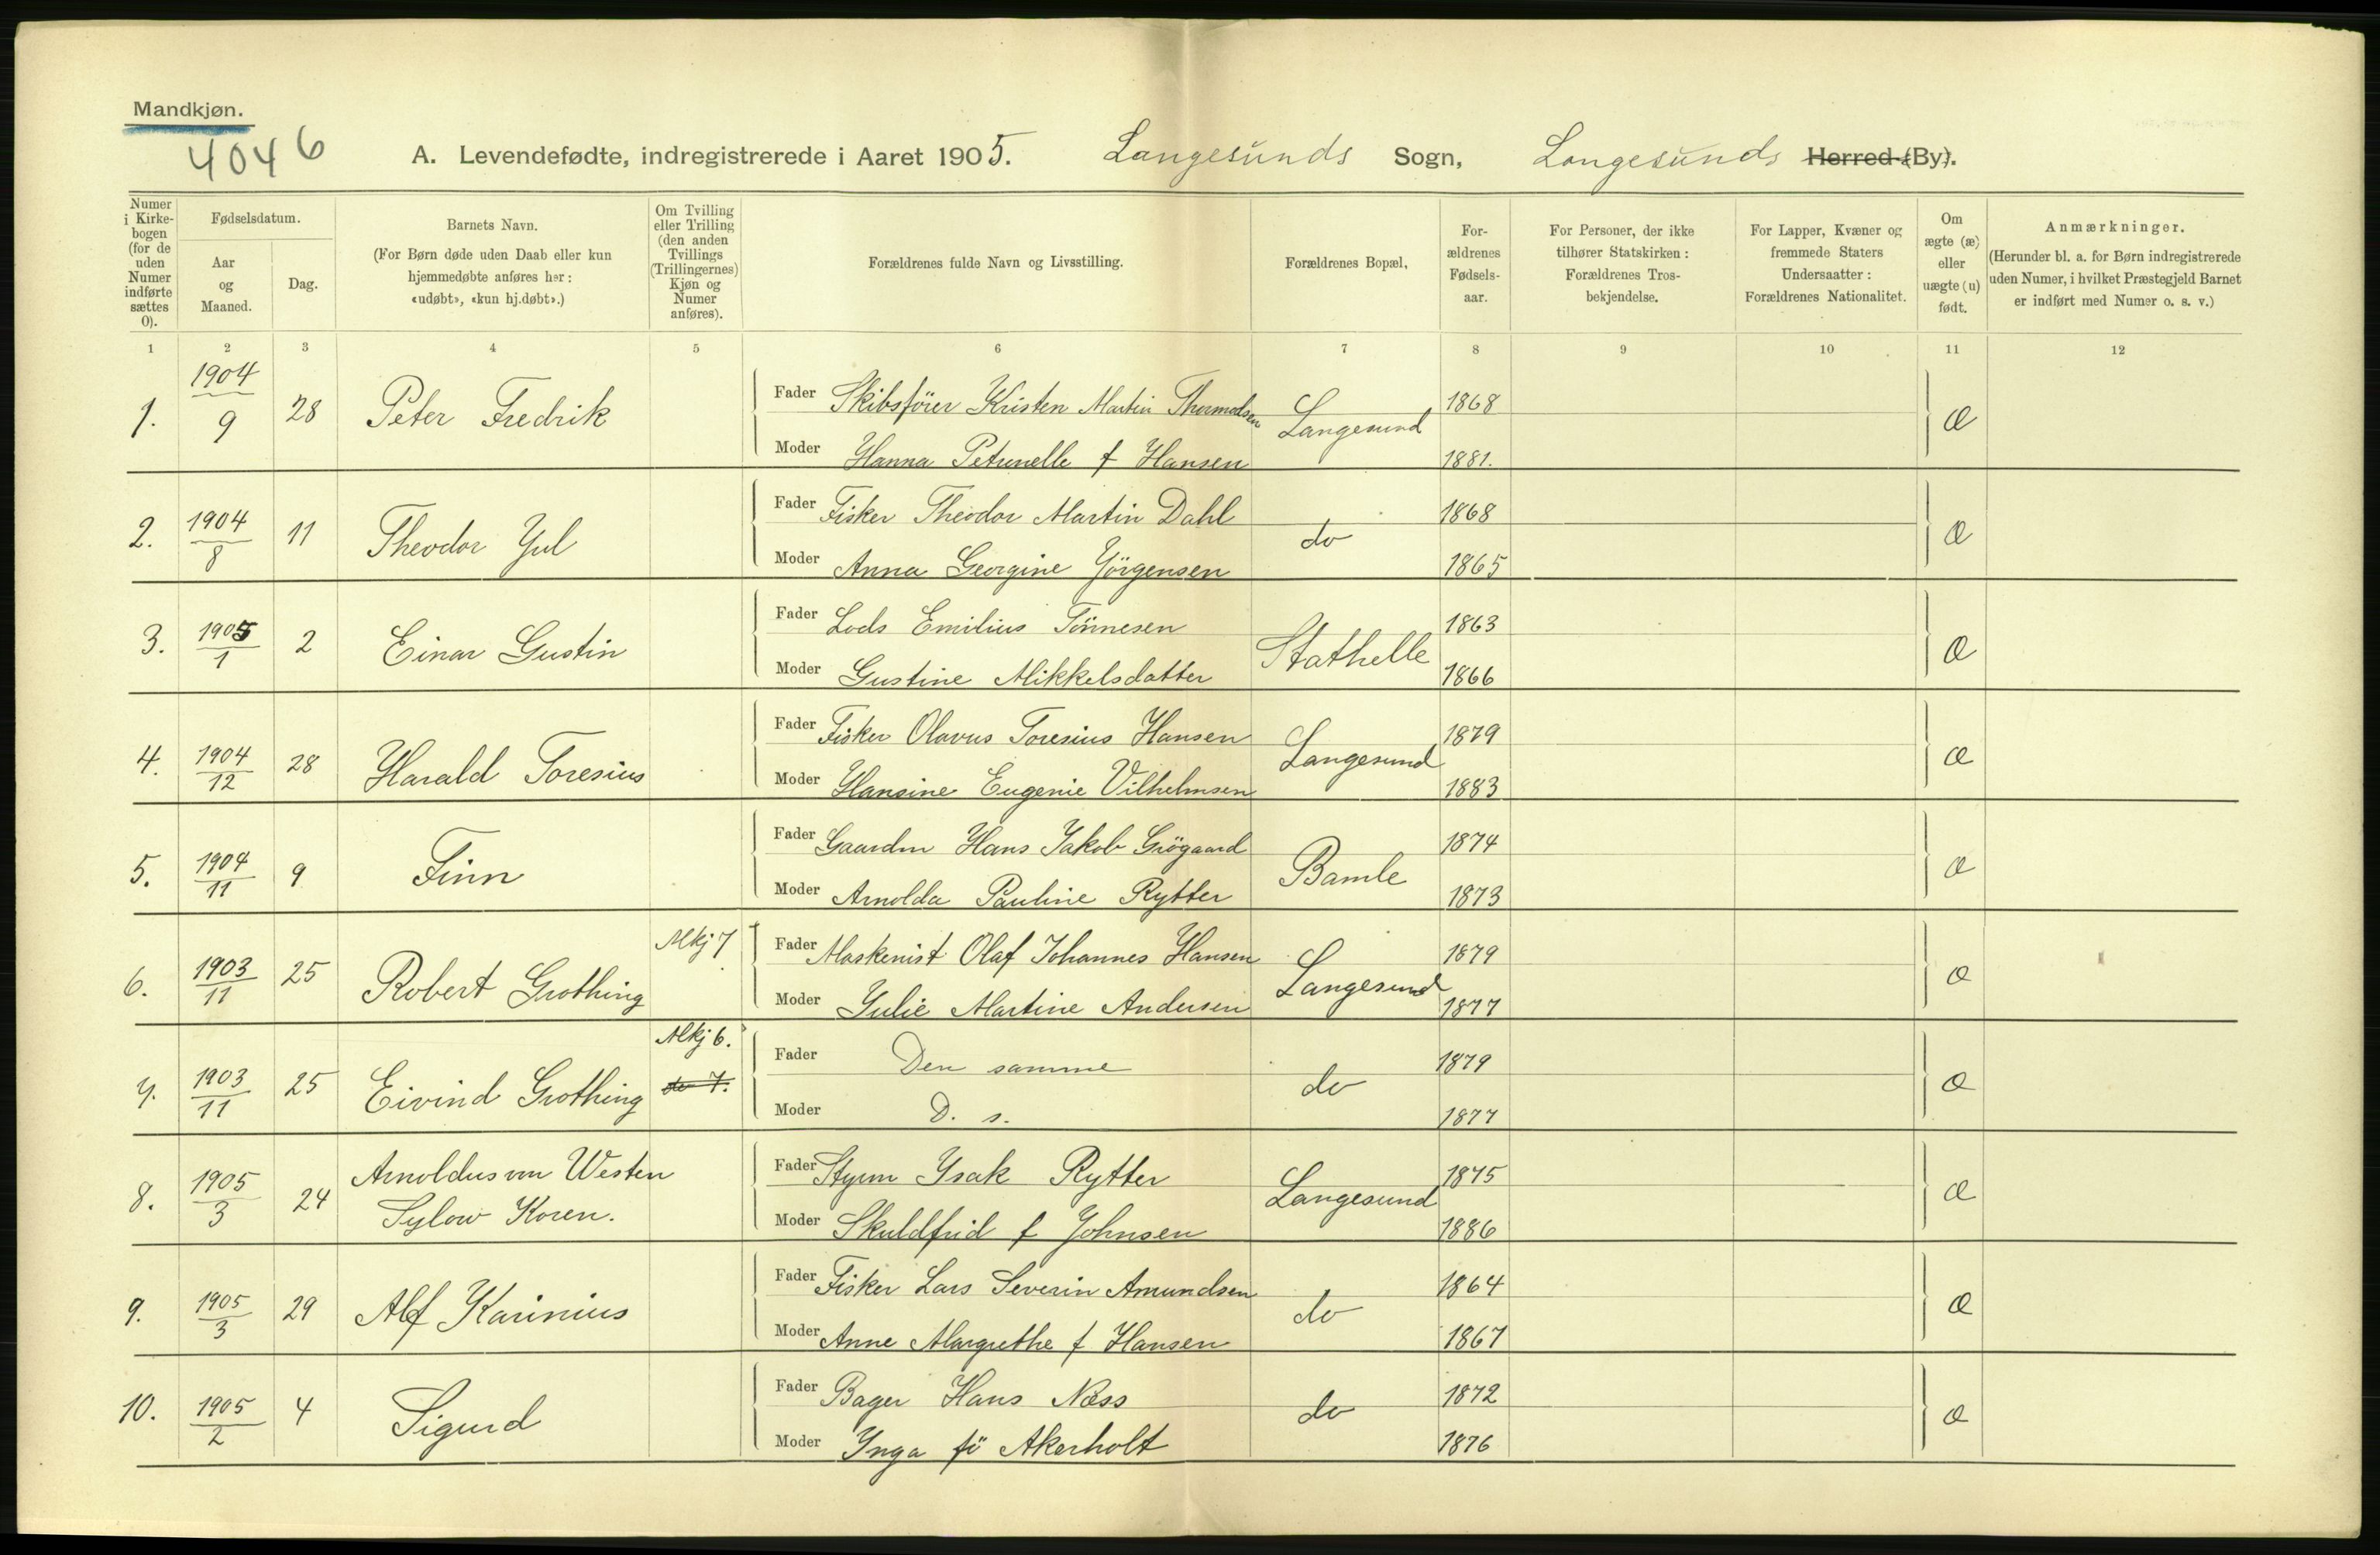 Mandkjøn.
4046
A. Levendefødte, indregistrerede i Aaret 1905. Langesunds Sogn, Langesunds Herred (By).
Numer i Kirkebogen (for de uden Numer indførte sættes 0).
Fødselsdatum.
Aar og Maaned.
Dag.
Barnets Navn.
(For Børn døde uden Daab eller kun hjemmedøbte anføres her: «udøbt», «kun hj.døbt».)
Om Tvilling eller Trilling (den anden Tvillings (Trillingernes) Kjøn og Numer anføres).
Forældrenes fulde Navn og Livsstilling.
Forældrenes Bopæl,
Forældrenes Fødselsaar.
For Personer, der ikke tilhører Statskirken: Forældrenes Trosbekjendelse.
For Lapper, Kvæner og fremmede Staters Undersaatter: Forældrenes Nationalitet.
Om ægte (æ) eller uægte (u) født.
Anmærkninger.
(Herunder bl. a. for Børn indregistrerede uden Numer, i hvilket Præstegjeld Barnet er indført med Numer o. s. v.)
1 2 3 4 5 6 7 8 9 10 11 12
1. 1904 9 28 Peter Fredrik
Fader Skibsförer Kristen Martin Thormodsen Langesund 1868 æ
Moder Hanna Petrenelle f Hansen 1881.
2. 1904 8 11 Theodor Jul
Fader Fisker Theodor Martin Dahl do 1868 æ
Moder Anna Georgine Jörgensen 1865
3. 1905 1 2 Einar Gustin
Fader Lods Emilius Tönnesen Stathelle 1863 æ
Moder Gustine Mikkelsdatter 1866
4. 1904 12 28 Harald Toresius
Fader Fisker Olavus Toresius Hansen Langesund 1879 æ
Moder Hansine Eugenie Vilhelmsen 1883
5. 1904 11 9 Finn
Fader Gaardm Hans Jakob Grögaard Bamle 1874 æ
Moder Arnolda Pauline Rytter 1873
6. 1903 11 25 Robert Grothing Mkj 7
Fader Maskenist Olaf Johannes Hansen Langesund 1879 æ
Moder Julie Martine Andersen 1877
7. 1903 11 25 Eivind Grothing Mkj 6. do 7.
Fader Den samme do 1879 æ
Moder D. s. 1877
8. 1905 3 24 Arnoldus von Westen Sylow Koren.
Fader Styrm Isak Rytter Langesund 1875 æ
Moder Skuldfrid f Johnsen 1886
9. 1905 3 29 Alf Karinius
Fader Fisker Lars Severin Amundsen do 1864 æ
Moder Anne Margrethe f Hansen 1867
10. 1905 2 4 Sigurd
Fader Bager Hans Næss do 1872 æ
Moder Inga fö Akerholt 1876